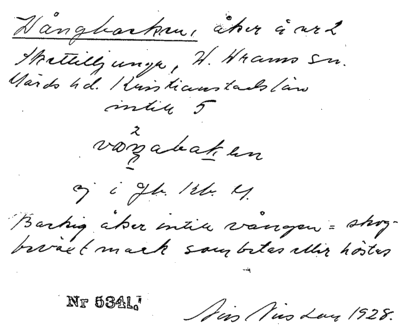 Vångbacken, åker å nr 2
Skättilljunga, V. Vrams sn.
Gärds hd. Kristianstads län
intill 5
2
ej i Jb. Kb. 
Backig åker intill vången = skog-
beväxt mark som betas eller höstas
Nr 5341.
Nils Nilsson 1928.